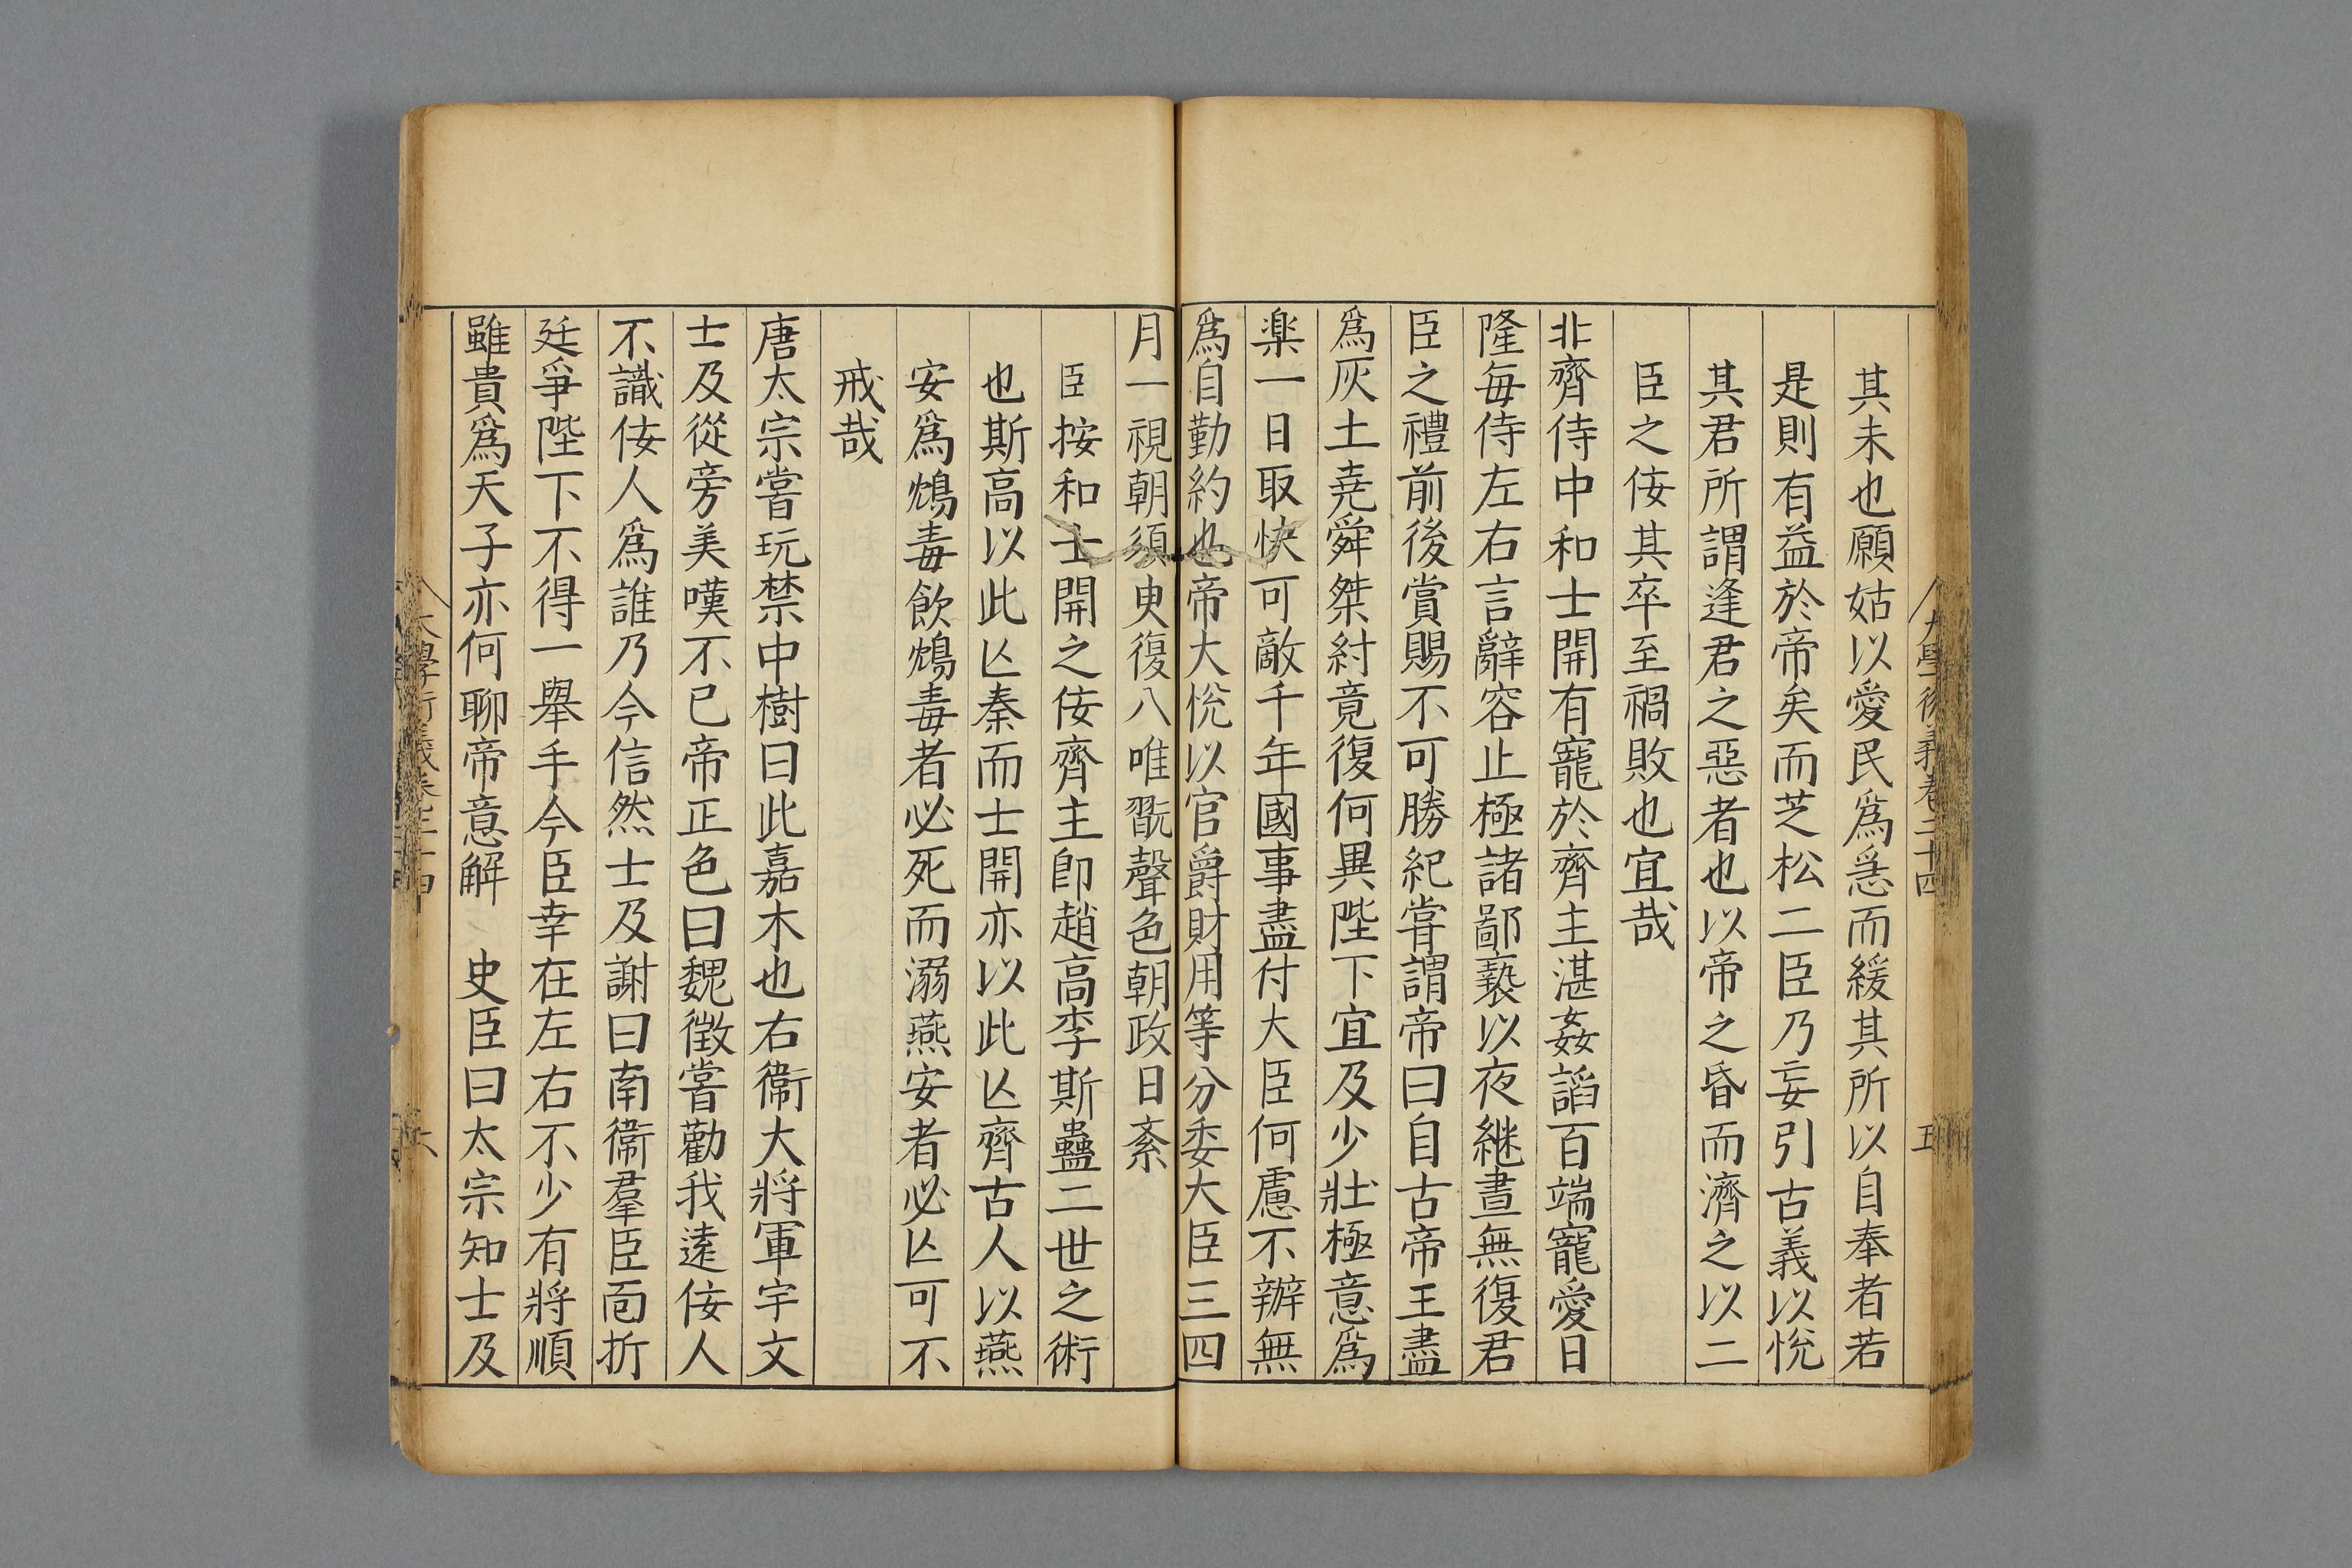 其未也願姑以愛民爲急而緩其所以自奉者若
是則有益於帝矣而芝松二臣乃妄引古義以悅
其君所謂逢君之惡者也以帝之昏而濟之以二
臣之佞其卒至禍敗也宜哉
北齊侍中和士開有寵於齊主湛姦諂百端寵愛日
隆每侍左右言辭容止極諸鄙褻以夜継晝無復君
臣之禮前後賞賜不可勝紀甞謂帝曰自古帝王盡
爲灰土堯舜桀紂竟復何異陛下宜及少壯極意爲
楽一日取快可敵千年國事盡付大臣何慮不辦無
爲自勤約也帝大悅以官爵財用等分委大臣三四
月一視朝須臾復入唯翫聲色朝政日紊
臣按和士開之佞齊主卽趙高李斯蠱二世之術
也斯高以此亾秦而士開亦以此亾齊古人以燕
安爲鴆毒飲鴆毒者必死而溺燕安者必亾可不
戒哉
唐太宗嘗玩禁中樹曰此嘉木也右衞大將軍宇文
士及從旁美嘆不已帝正色曰魏徵嘗勸我遠佞人
不識佞人爲誰乃今信然士及謝曰南衞羣臣靣折
廷爭陛下不得一舉手今臣幸在左右不少有將順
雖貴爲天子亦何聊帝意解 史臣曰太宗知士及
大學衍義卷二十四
五
大學衍義卷二十四
六